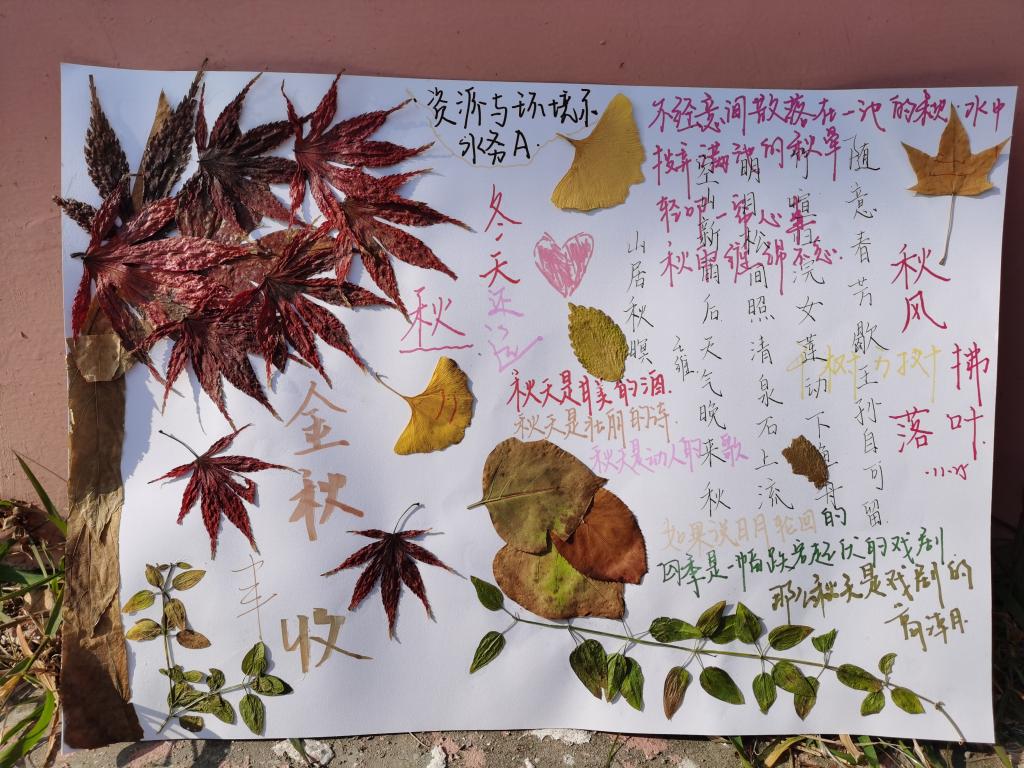 资源与环境系
水务A.
不经意间散落在一池的秋水中
满池的秋
轻叩一池心事
秋
冬天还远
秋
山居秋暝
空山新雨后天气晚来秋
明月松间照清泉石上流
喧归浣女莲动下
随意春芳歇王孙自可留
秋风
拂
落叶.
.11.25
千树万树
秋天是美的酒.
秋天是壮丽的诗
秋天是动人的歌
如果说日月轮回的
四季是一幅跌宕起伏的戏剧
那么秋天是戏剧的
高潮.
金秋
丰收